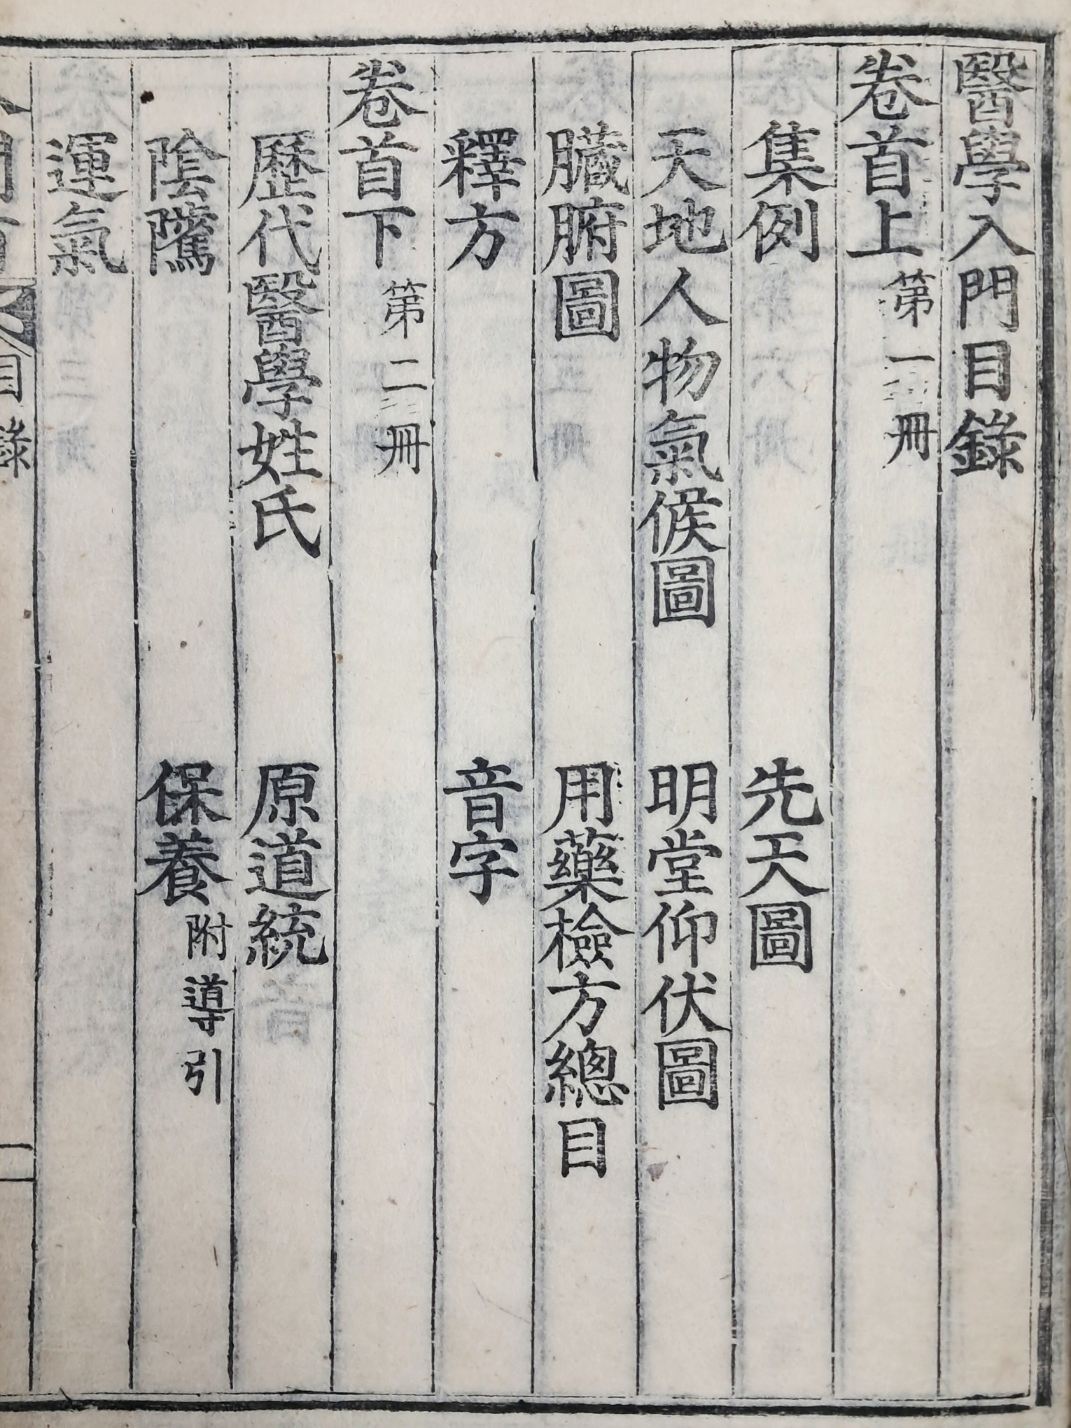 醫學入門目錄
卷首上 第一册
集例 先天圖
天地人物氣候圖 明堂仰伏圖
臟腑圖 用藥檢方總目
釋方 音字
卷首下 第二册
歷代醫學姓氏 原道統
陰隲 保養 附導引
運氣
目錄